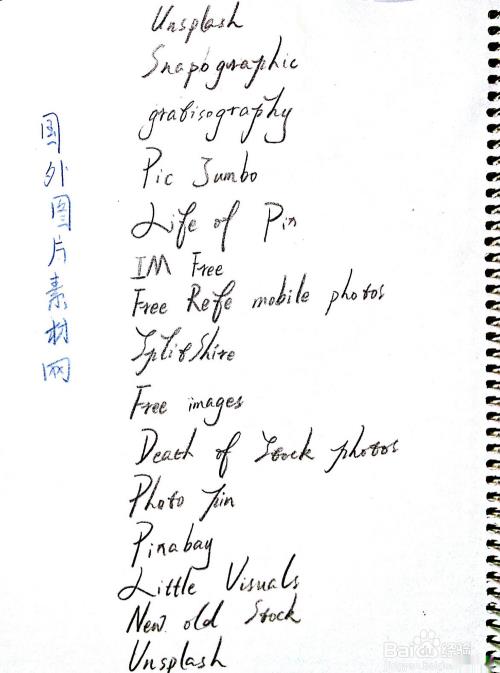 国外图片素材网
Unsplash
Snapographic
gratisography
Pic Jumbo
Life of Pix
IM Free
Free Refe mobile photos
SplitShire
Free images
Death of Stock photos
Photo pin
Pixabay
Little Visuals
New old Stock
Unsplash
Baidu经验
jingyan.baidu.com